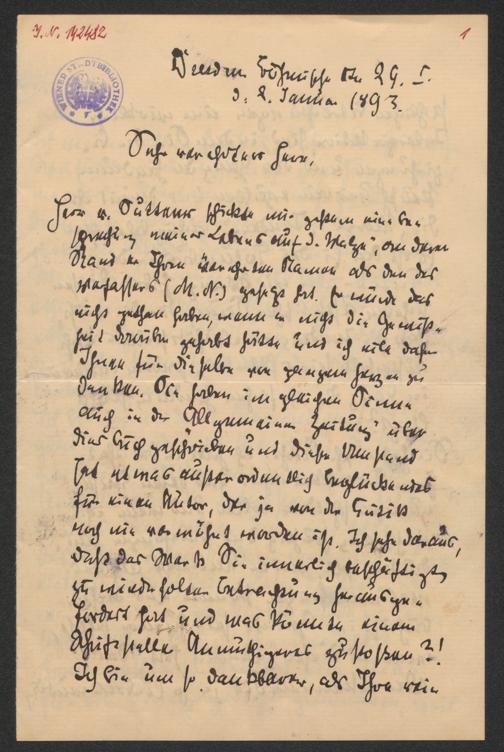 J. N. 142482
1
WIENER STADTBIBLIOTHEK
Dresden Böhmische Str. 29. I.
d. 2. Januar 1893.
Sehr verehrter Herr,
Herr v. Suttner schickte mir gestern eine Be-
sprechung meiner „Lebens auf d. Walze", an deren
Rand er Ihren verehrten Namen als den des
Verfassers (M. N.) gesetzt hat. Er würde das
nicht gethan haben, wenn er nicht die Gewiß-
heit darüber gehabt hätte und ich eile daher
Ihnen für dieselbe von ganzem Herzen zu
danken. Sie haben im gleichen Sinne
auch in der „Allgemeinen Zeitung" über
dies Buch geschrieben und dieser Umstand
hat etwas außerordentlich Beglückendes
für einen Autor, der ja von der Kritik
noch nie verwöhnt worden ist. Ich sehe daraus,
daß das Werk Sie innerlich beschäftigt,
zu wiederholter Betrachtung herausge-
fordert hat und was könnte einem
Schriftsteller Anmuthigeres zustoßen?!
Ich bin um so dankbarer, als Ihre